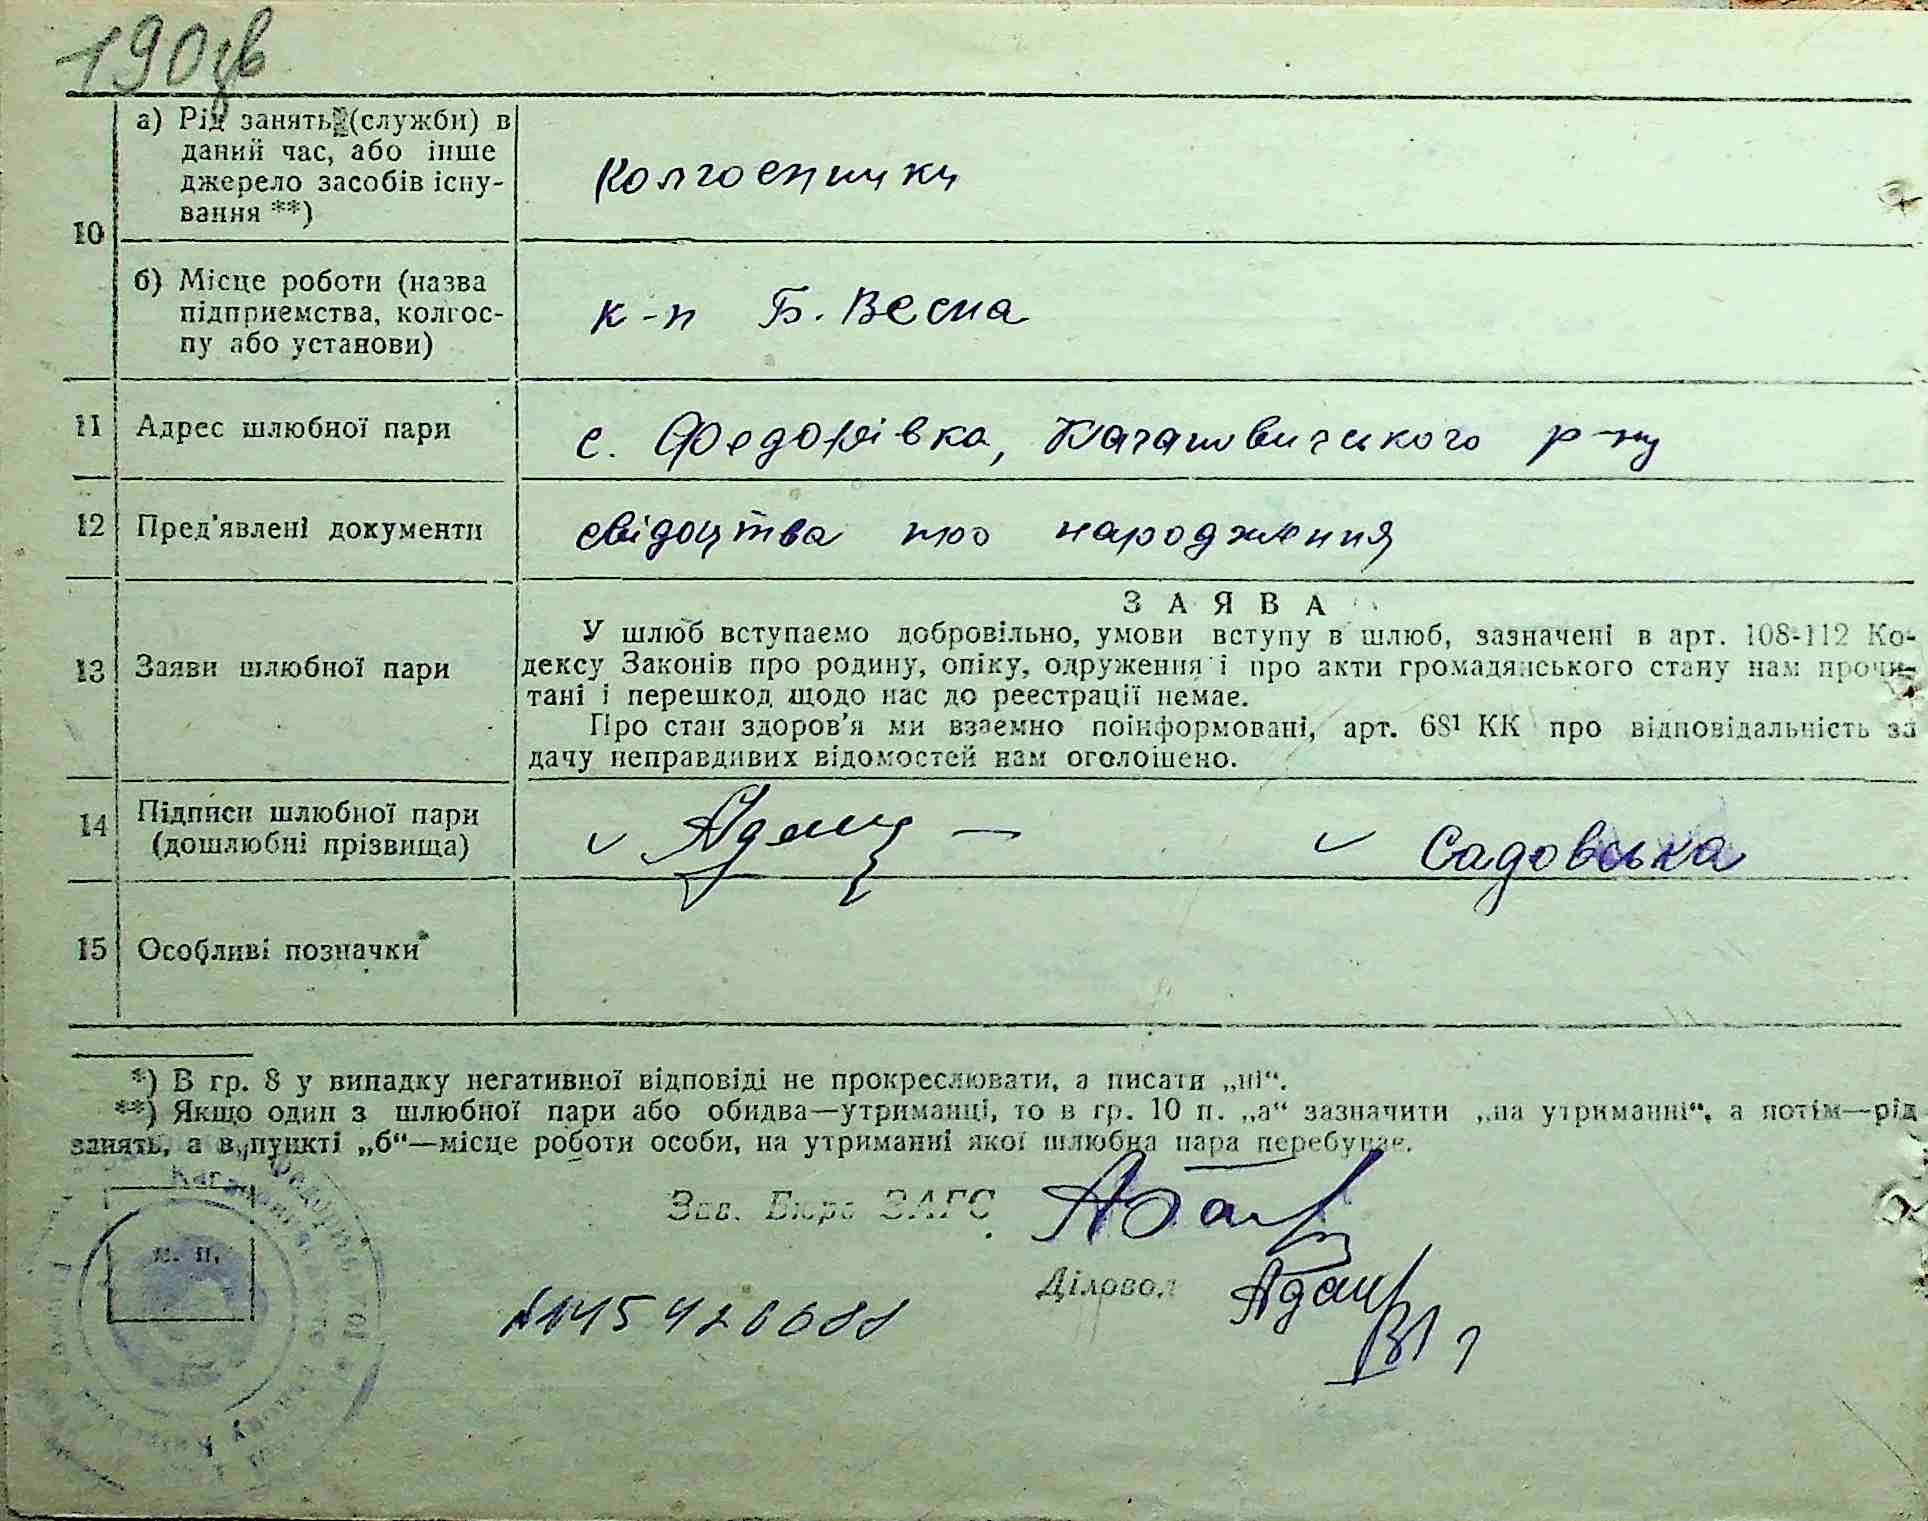 190 зв
10
а) Рід занять (службы) в
даний час, або інше
джерело засобів існу-
вання **)
Колгоспники
б) Місце роботи (назва
підприємства, колгос-
пу або установи)
к-п Б. Весна
11 Адрес шлюбної пари
с. Федорівка, Кагановицького р-ну
12 Пред'явлені документи
свідоцтва про народження
13 Заяви шлюбної пари
ЗАЯВА
У шлюб вступаемо добровільно, умови вступу в шлюб, зазначені в арт. 108-112 Ко-
дексу Законів про родину, опіку, одруження і про акти громадянського стану нам прочи-
тані і перешкод щодо нас до реестрації немае.
Про стан здоров'я ми взаемно поінформовані, арт. 68¹ КК про відповідальність за
дачу неправдивих відомостей нам оголошено.
14 Підписи шлюбної пари
(дошлюбні прізвища)
Садовська
15 Особливі позначки
*) В гр. 8 у випадку негативної відповіді не прокреслювати, а писати „ні“.
**) Якщо один з шлюбної пари або обидва—утриманці, то в гр. 10 п. „а“ зазначити „на утриманні“, а потім—рід
занять, а в пункті „б“—місце роботи особи, на утриманні якої шлюбна пара перебувае.
Зав. Бюро ЗАГС
м. п.
Діловод